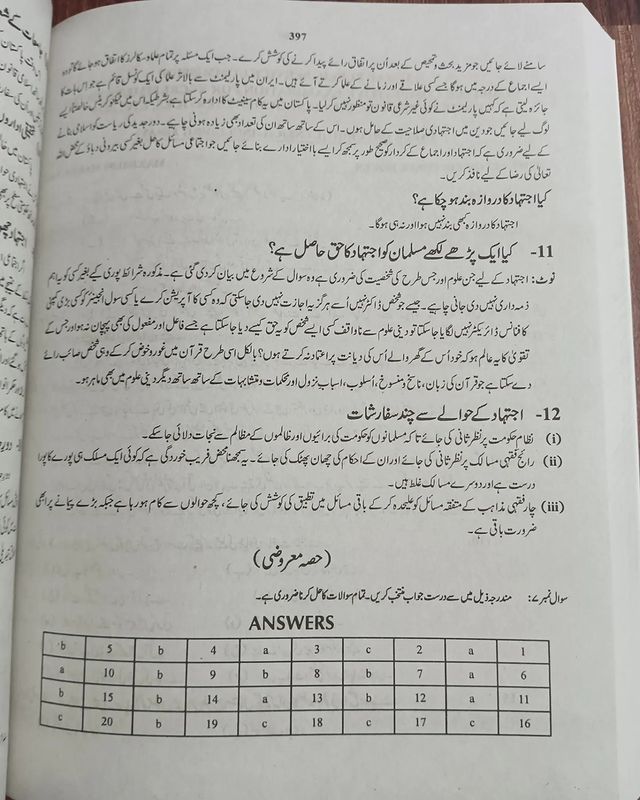 397
سامنے لائے جائیں جو مزید بحث و تمحیص کے بعد اُن پر اتفاق رائے پیدا کرنے کی کوشش کرے۔ جب ایک مسئلہ پر تمام علماء و سکالرز کا اتفاق ہو جائے گا تو وہ
ایسے اجماع کے درجہ میں ہو گا جسے کسی علاقے اور زمانے کے علما کرتے آئے ہیں۔ ایران میں پارلیمنٹ سے بالاتر علما کی ایک کونسل قائم ہے جو اس بات کا
جائزہ لیتی ہے کہ کہیں پارلیمنٹ نے کوئی غیر شرعی قانون تو منظور نہیں کر لیا۔ پاکستان میں یہ کام سینیٹ کا ادارہ کر سکتا ہے بشرطیکہ اس میں ٹیکنو کریٹس خالصتاً ایسے
لوگ لیے جائیں جو دین میں اجتہادی صلاحیت کے حامل ہوں۔ اس کے ساتھ ساتھ ان کی تعداد بھی زیادہ ہونی چاہیے۔ دور جدید کی ریاست کو اسلامی بنانے
کے لیے ضروری ہے کہ اجتہاد اور اجماع کے کردار کو صحیح طور پر سمجھ کر ایسے بااختیار ادارے بنائے جائیں جو اجتماعی مسائل کا حل بغیر کسی بیرونی دباؤ کے محض اللہ
تعالیٰ کی رضا کے لیے نافذ کریں۔
کیا اجتہاد کا دروازہ بند ہو چکا ہے؟
اجتہاد کا دروازہ کبھی بند نہیں ہوا اور نہ ہی ہو گا۔
11- کیا ایک پڑھے لکھے مسلمان کو اجتہاد کا حق حاصل ہے؟
نوٹ: اجتہاد کے لیے جن علوم اور جس طرح کی شخصیت کی ضروری ہے وہ سوال کے شروع میں بیان کر دی گئی ہے۔ مذکورہ شرائط پوری کیے بغیر کسی کو یہ اہم
ذمہ داری نہیں دی جانی چاہیے۔ جیسے جو شخص ڈاکٹر نہیں اُسے ہرگز یہ اجازت نہیں دی جا سکتی کہ وہ کسی کا آپریشن کرے یا کسی سول انجینئر کو کسی بڑی کمپنی
کا فنانس ڈائریکٹر نہیں لگایا جا سکتا تو دینی علوم سے ناواقف کسی ایسے شخص کو یہ حق کیسے دیا جا سکتا ہے جسے فاعل اور مفعول کی بھی پہچان نہ ہو اور جس کے
تقویٰ کا یہ عالم ہو کہ خود اُس کے گھر والے اُس کی دیانت پر اعتماد نہ کرتے ہوں؟ بالکل اسی طرح قرآن میں غور و خوض کر کے وہی شخص صائب رائے
دے سکتا ہے جو قرآن کی زبان، ناسخ و منسوخ، اُسلوب، اسباب نزول اور محکمات و متشابہات کے ساتھ ساتھ دیگر دینی علوم میں بھی ماہر ہو۔
12- اجتہاد کے حوالے سے چند سفارشات
(i) نظام حکومت پر نظر ثانی کی جائے تاکہ مسلمانوں کو حکومت کی برائیوں اور ظالموں کے مظالم سے نجات دلائی جا سکے۔
(ii) رائج فقہی مسالک پر نظر ثانی کی جائے اور ان کے احکام کی چھان پھٹک کی جائے۔ یہ سمجھنا محض فریب خوردگی ہے کہ کوئی ایک مسلک ہی پورے کا پورا
درست ہے اور دوسرے مسالک غلط ہیں۔
(iii) چار فقہی مذاہب کے متفقہ مسائل کو علیحدہ کر کے باقی مسائل میں تطبیق کی کوشش کی جائے، کچھ حوالوں سے کام ہو رہا ہے جبکہ بڑے پیمانے پر ابھی
ضرورت باقی ہے۔
(حصہ معروضی)
سوال نمبر ۷: مندرجہ ذیل میں سے درست جواب منتخب کریں۔ تمام سوالات کا حل کرنا ضروری ہے۔
ANSWERS
b 5 b 4 a 3 c 2 a 1
a 10 b 9 b 8 b 7 a 6
b 15 b 14 a 13 b 12 a 11
c 20 b 19 c 18 c 17 c 16